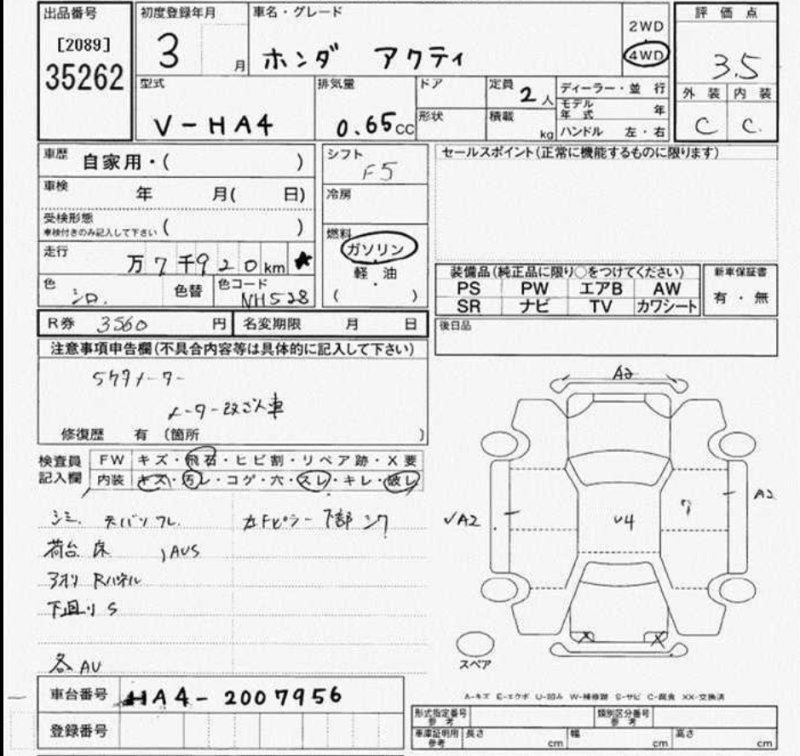 出品番号
[2089]
35262
初度登録年月
3 月
車名・グレード
ホンダ アクティ
2WD
4WD
評価点
3.5
外装 内装
C C.
型式
V-HA4
排気量
0.65cc
ドア
形状
定員
2人
積載
kg
ディーラー・並行
モデル年式 年
ハンドル 左・右
車歴
自家用・( )
車検
年 月( 日)
受検形態
車検付きのみ記入して下さい ( )
走行
万7千920km ★
色
シロ.
色替
色コード
NH528
シフト
F5
冷房
燃料
ガソリン
軽・油
( )
セールスポイント(正常に機能するものに限ります)
装備品(純正品に限り○をつけてください)
PS PW エアB AW
SR ナビ TV カワシート
新車保証書
有・無
R券 3560 円
名変期限 月 日
後日品
注意事項申告欄(不具合内容等は具体的に記入して下さい)
5ケタメーター
メーター改ざん車
修復歴 有 (箇所 )
検査員記入欄
FW キズ・飛石・ヒビ割・リペア跡・X要
内装 キズ・汚レ・コゲ・穴・スレ・キレ・破レ
荷台 床 , AUS
アオリ Rパネル
下回り S
各AU
A2
√A2
U4
A2
X
X
スペア
A-キズ E-エクボ U-凹み W-補修跡 S-サビ C-腐食 XX-交換済
車台番号
HA4-2007956
登録番号
形式指定番号 参考
類別区分番号 参考
車庫証明用 参考
長さ cm
幅 cm
高さ cm